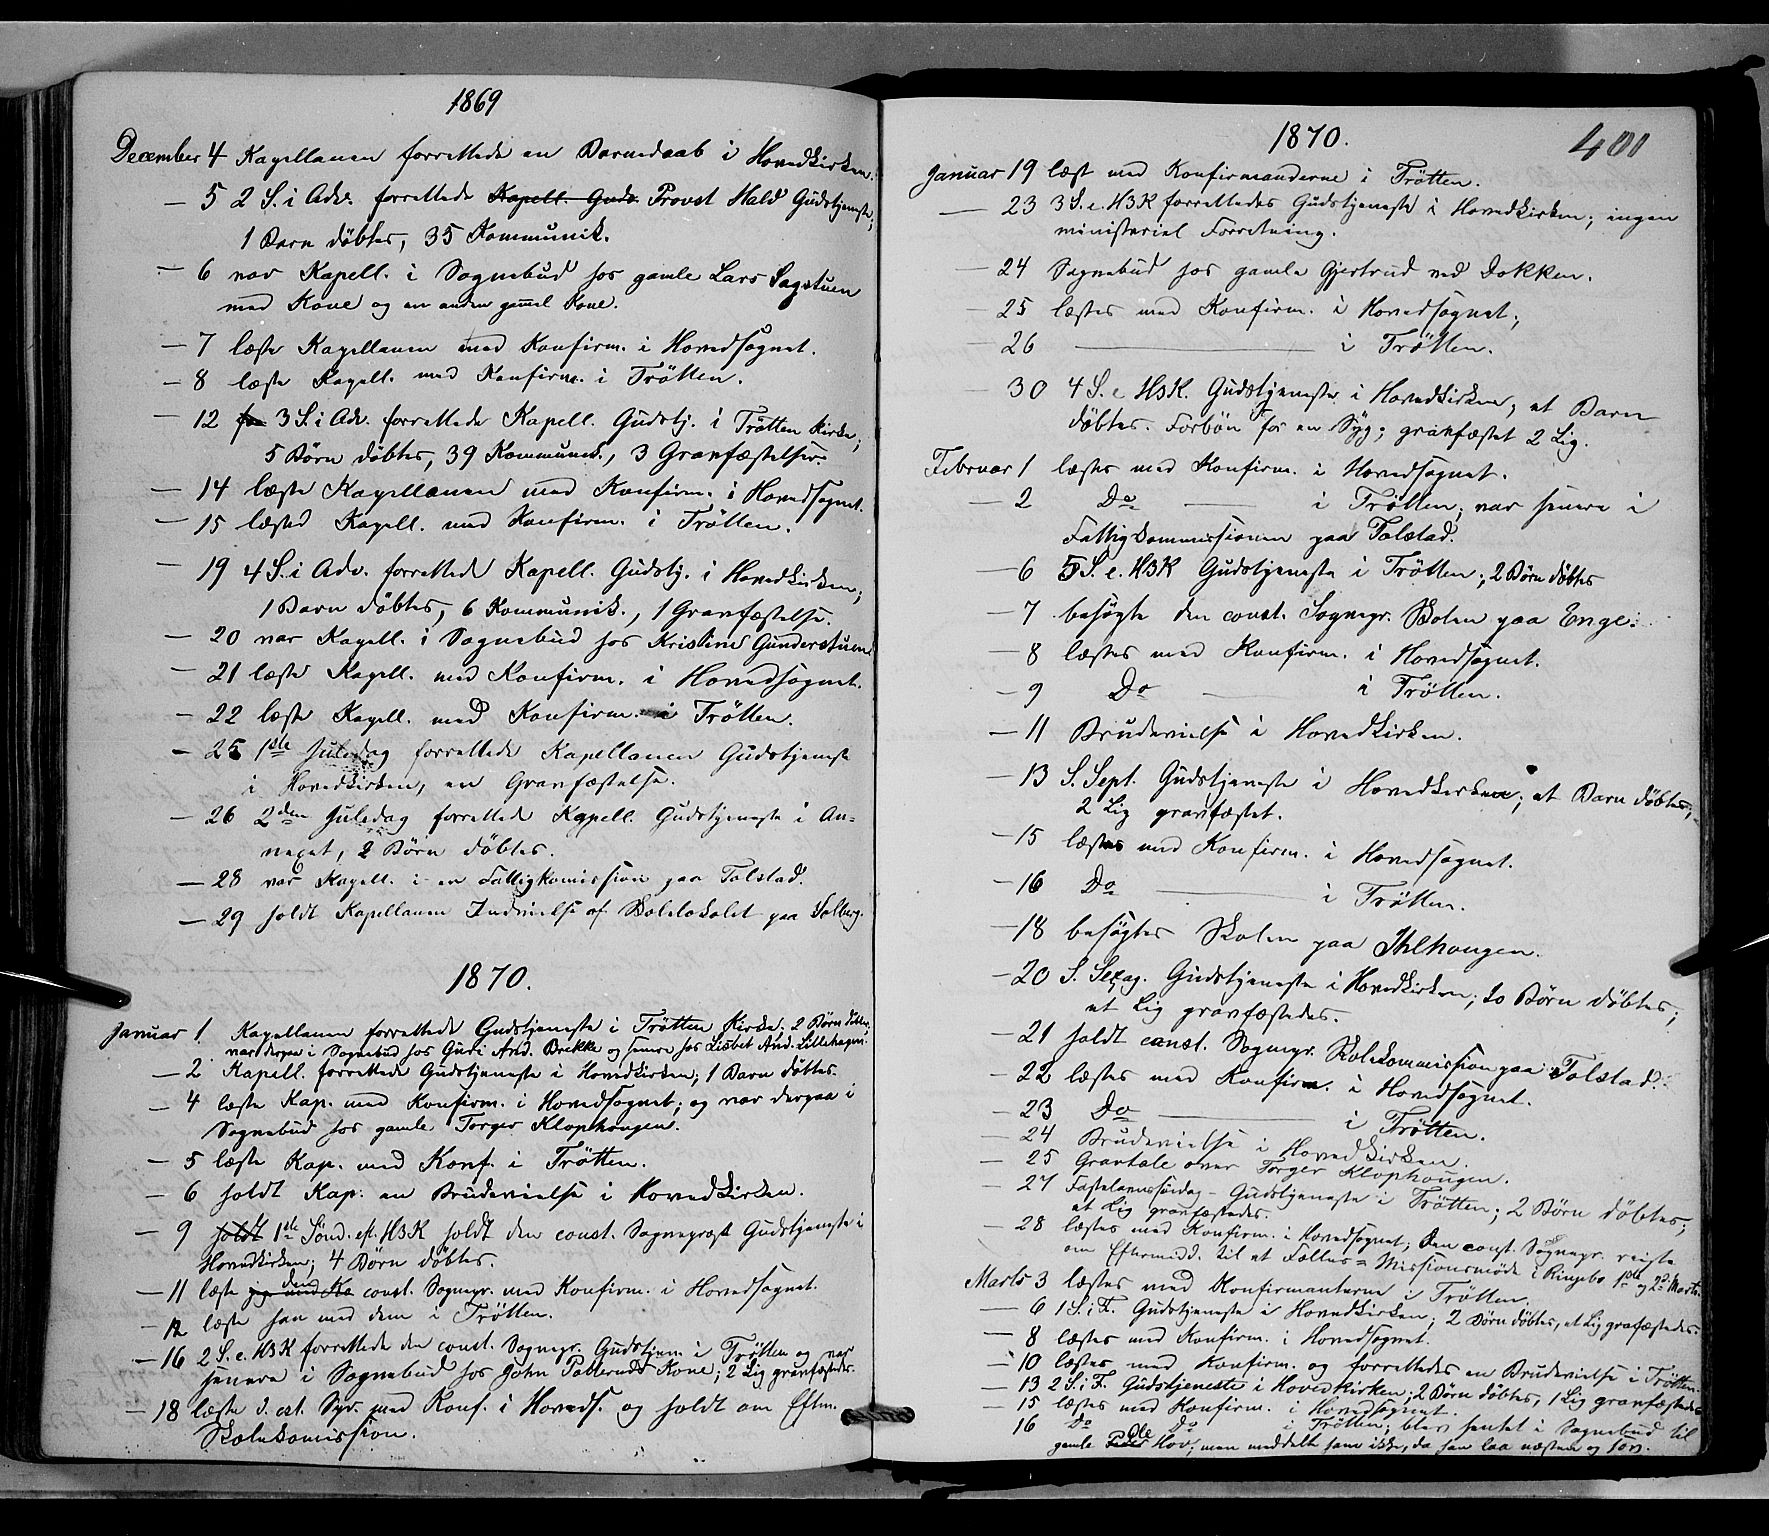 1869
December 4 Kapellanen forrettede en Barnedaab i Hovedkirken.
— 5 2 S. i Adv. forrettede Kapell. Guds. Provst Hald Gudstjeneste;
1 Barn döbtes, 35 Kommunik.
— 6 var Kapell. i Sognebud hos gamle Lars Sagstuen
med Kone og en anden gamel Kone.
— 7 læste Kapellanen med Konfirm. i Hovedsognet.
— 8 læste Kapell. med Konfirm. i Trötten.
— 12 fo 3 S. i Adv. forrettede Kapell. Gudstj. i Trötten Kirke;
5 Börn döbtes, 39 Kommunik., 3 Gravfæstelser.
— 14 læste Kapellanen med Konfirm. i Hovedsognet.
— 15 læsted Kapell. med Konfirm. i Trötten.
— 19 4 S. i Adv. forrettede Kapell. Gudstj. i Hovedkirken;
1 Barn döbtes, 6 Kommunik., 1 Gravfæstelse.
— 20 var Kapell. i Sognebud hos Kristine Gunderstuen.
— 21 læste Kapell. med Konfirm. i Hovedsognet.
— 22 læste Kapell. med Konfirm. i Trötten.
— 25 1ste Juledag forrettede Kapellanen Gudstjeneste
i Hovedkirken, en Gravfæstelse.
— 26 2den Juledag forrettede Kapell. Gudstjeneste i An=
nexet, 2 Börn döbtes.
— 28 var Kapell. i en Fattigkomission paa Tolstad.
— 29 holdt Kapellanen Indvielse af Skolelokalet paa Solberg.
1870.
Januar 1 Kapellanen forrettede Gudstjeneste i Trötten Kirke. 2 Börn döbtes.
var derpaa i Sognebud hos Guri And. Brekke og senere hos Lisbet And. Lillehagen.
— 2 Kapell. forrettede Gudstjeneste i Hovedkirken; 1 Barn döbtes.
— 4 læste Kap. med Konfirm. i Hovedsognet; og var derpaa i
Sognebud hos gamle Torger Klophougen.
— 5 læste Kap. med Konf. i Trötten.
— 6 holdt Kap. en Brudevielse i Hovedkirken.
— 9 holdt 1ste Sönd. ef. H3K holdt den const. Sognepræst Gudstjeneste i
Hovedkirken; 4 Börn döbtes.
— 11 læste den const. Sognepr. med Konfirm. i Hovedsognet.
— 12 læste han med dem i Trötten.
— 16 2 S. e. H3K forrettede den const. Sognepr. Gudstjen. i Trötten og var
senere i Sognebud hos John Kone; 2 Lig gravfæstedes.
— 18 læste d. cst. Spr. med Konf. i Hoveds. og holdt om Eftm.
Skolekomission.
1870. 401
Januar 19 læst med Konfirmanderne i Trötten.
— 23 3 S. e. H3K forrettedes Gudstjeneste i Hovedkirken; ingen
ministeriel Forretning.
— 24 Sognebud hos gamle Gjertrud ved Dokken.
— 25 læstes med Konfirm. i Hovedsognet;
26 ——— i Trötten.
— 30 4 S. e H3K. Gudstjeneste i Hovedkirken, et Barn
döbtes. Forbön for en Syg; gravfæstet 2 Lig.
Februar 1 læstes med Konfirm. i Hovedsognet.
— 2 Do — i Trötten; var senere i
Fattigkommissionen paa Tolstad.
— 6 5 S. e. H3K Gudstjeneste i Trötten; 2 Börn döbtes
— 7 besögte den const. Sognepr. Skolen paa Enge.
— 8 læstes med Konfirm. i Hovedsognet.
— 9 Do — i Trötten.
— 11 Brudevielse i Hovedkirken.
— 13 S. Sept. Gudstjeneste i Hovedkirken; et Barn döbtes;
2 Lig gravfæstet.
— 15 læstes med Konfirm. i Hovedsognet.
— 16 Do ——— i Trötten.
— 18 besögtes Skolen paa Ihlhougen.
— 20 S. Sexag. Gudstjeneste i Hovedkirken; 10 Börn döbtes;
et Lig gravfæstedes.
— 21 holdt const. Sognepr. Skolekommission paa Tolstad.
— 22 læstes med Konfirm. i Hovedsognet.
— 23 Do ——— i Trötten.
— 24 Brudevielse i Hovedkirken.
— 25 Gravtale over Torger Klophougen.
— 27 Fastelavnssöndag – Gudstjeneste i Trötten; 2 Börn döbtes;
et Lig gravfæstedes.
— 28 læstes med Konfirm. i Hovedsognet; Den const. Sognepr. reiste
om Eftermidd. til et Fælles=Missionsmöde i Ringebo 1ste og 2d Marts.
Marts 3 læstes med Konfirmanterne i Trötten.
— 6 1 S. i F. Gudstjeneste i Hovedkirken; 2 Börn döbtes, et Lig grafæstedes.
— 8 læstes med Konfirm. i Hovedsognet.
— 10 læstes med Konfirm. og forrettedes en Brudevielse i Trötten.
— 13 2 S. i F. Gudstjeneste i Hovedkirken; 2 Börn döbtes, 1 Lig gravfæstedes
— 15 læstes med Konfirm. i Hovedsognet.
16 Do Do i Trötten; blev hentet i Sognebud til
gamle Peder Ole Hov; men meddelte ham ikke, da han laa næsten og sov.